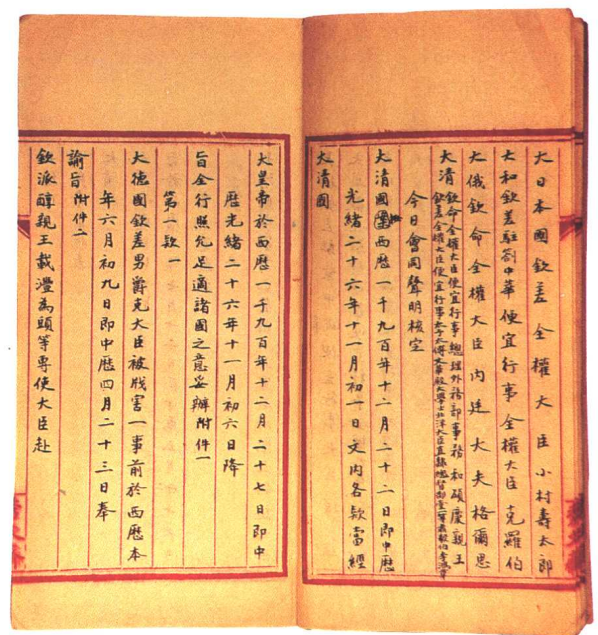 大日本國欽差全權大臣小村壽太郎
大和欽差駐劄中華便宜行事全權大臣克羅伯
大俄欽命全權大臣內廷大夫格爾思
大清欽命全權大臣便宜行事總理外務部事務和碩慶親王
欽差全權大臣便宜行事太子太傅文華殿大學士北洋大臣直隸總督部堂一等肅毅伯李鴻章
今日會同聲明核定
大清國西歷一千九百年十二月二十二日即中歷
光緒二十六年十一月初一日文內各款當經
大清國
大皇帝於西歷一千九百年十二月二十七日即中
歷光緒二十六年十一月初六日降
旨全行照允足適諸國之意妥辦附件一
第一款一
大德國欽差男爵克大臣被戕害一事前於西歷本
年六月初九日即中歷四月二十三日奉
諭旨附件二
欽派醇親王載灃為頭等專使大臣赴